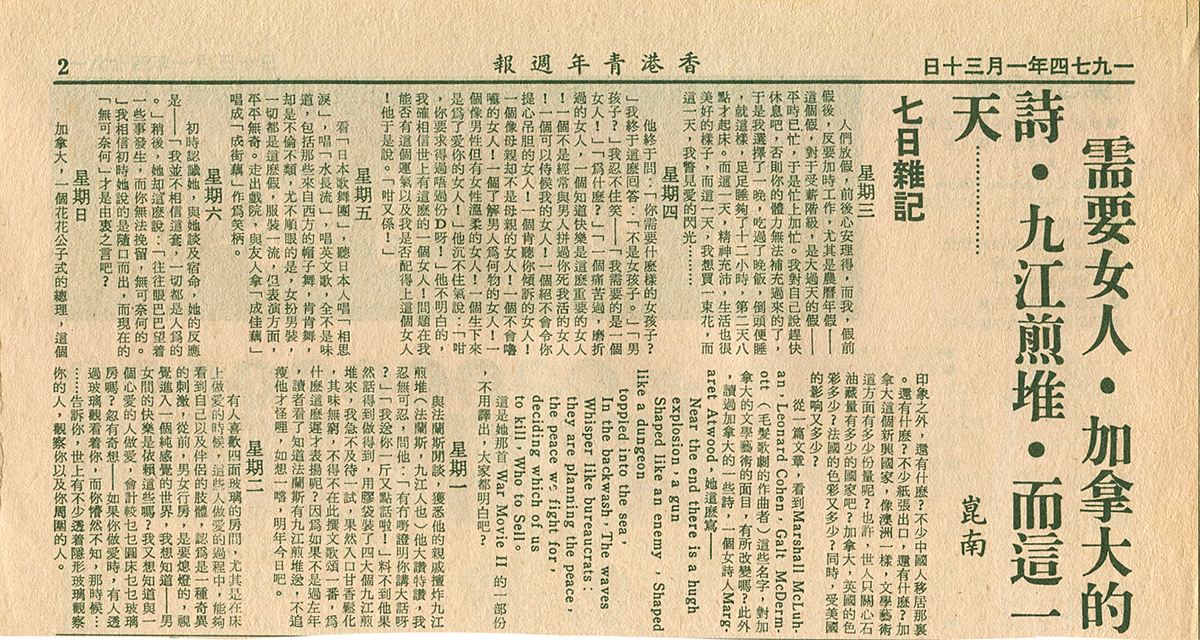 一九七四年一月三十日
香港青年週報
2
需要女人・加拿大的
詩・九江煎堆・而這一
天…………
崑南
七日雜記
星期三
人們放假，前後心安理得，而我，假前
假後，反要加時工作，尤其是農曆年假——
這個假，對于受薪階級，是大過天的假——
平時已忙，于是忙上加忙。我對自己說趕快
休息吧，否則你的體力無法補充過來的了，
于是我選擇了一晚，吃過了晚飯，倒頭便睡
，就這樣，足足睡夠了十二小時，第二天八
點才起床。而這一天，精神充沛，生活也很
美好的樣子，而這一天，我想買一束花，而
這一天，我瞥見愛的閃光……
星期四
他終于問：「你需要什麼樣的女孩子？
」我終于這麼回答：「不是女孩子。」「男
孩子？」我忍不住笑——「我需要的是一個
女人！」「爲什麼？」「一個痛苦過，磨折
過的女人，一個知道快樂是這麼重要的女人
！一個不是經常與男人拼過你死我活的女人
！一個可以侍候我的女人！一個絕不會令你
提心吊胆的女人！一個肯聽你傾訴的女人！
一個像母親却不是母親的女人！一個不會嚕
囌的女人！一個了解男人爲何物的女人！一
個像男性但有女性溫柔的女人！一個生下來
是爲了愛你的女人！」他沉不住氣說：「咁
，你要求得過唔過份D呀！」他不明白的，
我確相信世上有這麼的一個女人！問題在我
能否有這個運氣以及我是否配得上這個女人
！他于是說。「咁又係！」
星期五
看「日本歌舞團」，聽日本人唱「相思
淚」，唱「水長流」，唱英文歌，全不是味
道，包括那些來自西方的帽子舞，肯肯舞，
却是不倫不類，尤不順眼的是，女份男裝，
一切都是這麼假，服裝一流，但表演方面，
平平無奇。走出戲院，與友人拿「成佳藕」
唱成「成街藕」作爲笑柄。
星期六
初時認識她，與她談及宿命，她的反應
是——「我並不相信這套，一切都是人爲的
。」稍後，她却這麼說：「往往眼巴巴望着
一些事發生，而你無法挽留，無可奈何的。
」我相信初時她說的是隨口而出，而現在的
「無可奈何」才是由衷之言吧？
星期日
加拿大，一個花花公子式的總理，這個
印象之外，還有什麼？不少中國人移居那裏
。還有什麼？不少紙張出口，還有什麼？加
拿大這個新興國家，像澳洲一樣，文學藝術
這方面有多少份量呢？也許，世人只關心石
油藏量有多少的國家吧？加拿大，英國的色
彩多少？法國的色彩又多少？同時，受美國
的影响又多少？
從一篇文章，看到Marshall McLuh-
an, Leonard Cohen, Galt McDerm-
ott（毛髮歌劇的作曲者）這些名字，對加
拿大的文學藝術的面目，有所改變嗎？此外
，讀過加拿大的一些詩，一個女詩人Marg-
aret Atwood，她這麼寫——
Near the end there is a hugh
explosion, a gun
Shaped like an enemy, Shaped
like a dungeon
toppled into the sea,
In the backwash, The waves
Whisper like bureaucrats:
they are planning the peace,
the peace we fight for,
deciding which of us
to kill, Who to Sell。
這是她那首 War Movie II 的一部份
，不用譯出，大家都明白吧？
星期一
與法蘭斯閒談，獲悉他的親戚擅炸九江
煎堆（法蘭斯，九江人也）他大讚特讚，我
忍無可忍，問他：「有冇嘢證明你講大話呀
？」「我送你一斤又點話啦！」料不到他果
然話得到做得到，用膠袋裝了四大個九江煎
堆來，我急不及待一試，果然入口甘香鬆化
，其味無窮，不得不在此撰文歌頌一番，爲
什麼這麼遲才表揚呢？因爲如果不是過左年
，讀者看了知道法蘭斯有九江煎堆送，不追
瘦他才怪哩，如想一嚐，明年今日吧。
星期二
有人喜歡四面玻璃的房間，尤其是在床
上做愛的時候，這些人做愛的過程中，能夠
看到自己以及伴侶的肢體，認爲是一種奇異
的刺激，從前，男女行房，是要熄燈的，視
覺進入一個純感覺的世界，我想知道——男
女間的快樂是依賴這些嗎？我又想知道與一
個心愛的人做愛，會計較乜乜圓床乜乜玻璃
房嗎？忽有奇想——如果你做愛時，有人透
過玻璃觀看着你，而你懵然不知，那時候…
……告訴你，世上有不少透着隱形玻璃觀察
你的人，觀察你以及你周圍的人。